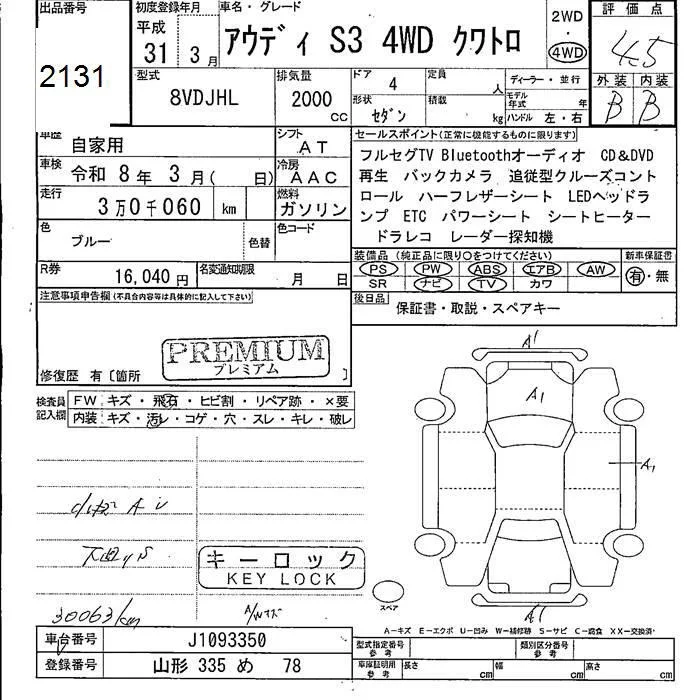 出品番号 2131
初度登録年月 平成 31年 3月
車名・グレード アウディ S3 4WD クワトロ
2WD ・ 4WD
評価点 4.5
外装 内装
B B
型式 8VDJHL
排気量 2000 cc
ドア 4
定員 人
形状 セダン
積載 kg
ディーラー・並行
モデル年式 年
ハンドル 左・右
車歴 自家用
シフト AT
車検 令和 8年 3月( 日)
冷房 AAC
走行 3万0千060 km
燃料 ガソリン
色 ブルー
色替
色コード
R券 16,040円
名変通知期限 月 日
セールスポイント(正常に機能するものに限ります)
フルセグTV Bluetoothオーディオ CD&DVD
再生 バックカメラ 追従型クルーズコント
ロール ハーフレザーシート LEDヘッドラ
ンプ ETC パワーシート シートヒーター
ドラレコ レーダー探知機
装備品 (純正品に限り○をつけてください)
新車保証書
PS PW ABS エアB AW
SR ナビ TV カワ
有・無
後日品 保証書・取説・スペアキー
注意事項申告欄(不具合内容等は具体的に記入して下さい)
PREMIUM
プレミアム
修復歴 有〔箇所 〕
検査員記入欄
FW キズ・飛石・ヒビ割・リペア跡・×要
内装 キズ・汚レ・コゲ・穴・スレ・キレ・破レ
A1
A1
A1
A1
キーロック
KEY LOCK
30063km
A/Wキズ
スペア
A-キズ E-エクボ U-凹み W-補修跡 S-サビ C-腐食 XX-交換済
車台番号 J1093350
登録番号 山形 335 め 78
型式指定番号 参考
類別区分番号 参考
車庫証明用 参考
長さ cm
幅 cm
高さ cm